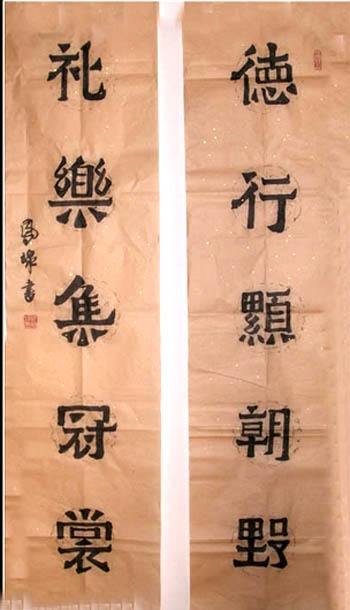 德行顯朝野
礼樂集冠裳
書